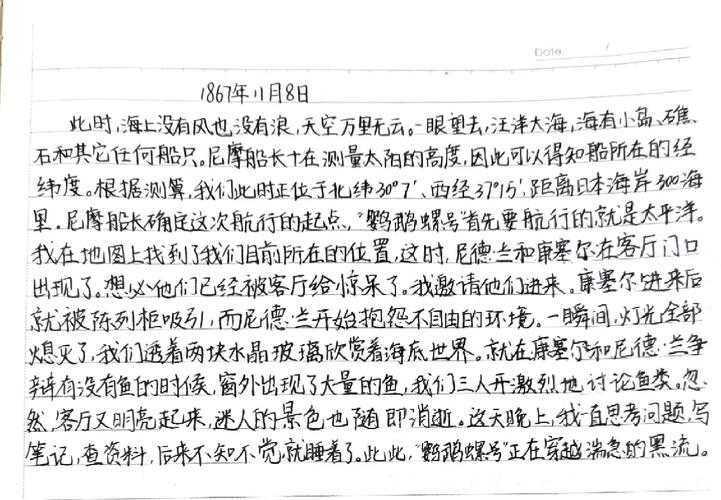 Date /
1867年11月8日
此时,海上没有风也没有浪,天空万里无云。一眼望去,汪洋大海,海有小岛、礁
石和其它任何船只。尼摩船长十在测量太阳的高度,因此可以得知船所在的经
纬度。根据测算,我们此时正位于北纬30°7′、西经37°15′,距离日本海岸300海
里。尼摩船长确定这次航行的起点,“鹦鹉螺号”首先要航行的就是太平洋。
我在地图上找到了我们目前所在的位置,这时,尼德·兰和康塞尔在客厅门口
出现了。想必他们已经被客厅给惊呆了。我邀请他们进来。康塞尔进来后
就被陈列柜吸引,而尼德·兰开始抱怨不自由的环境。一瞬间,灯光全部
熄灭了,我们透着两块水晶玻璃欣赏着海底世界。就在康塞尔和尼德·兰争
辩有没有鱼的时候,窗外出现了大量的鱼,我们三人开激烈地讨论鱼类。忽
然,客厅又明亮起来,迷人的景色也随即消逝。这天晚上,我一直思考问题,写
笔记,查资料,后来不知不觉就睡着了。此此,“鹦鹉螺号”正在穿越湍急的黑流。